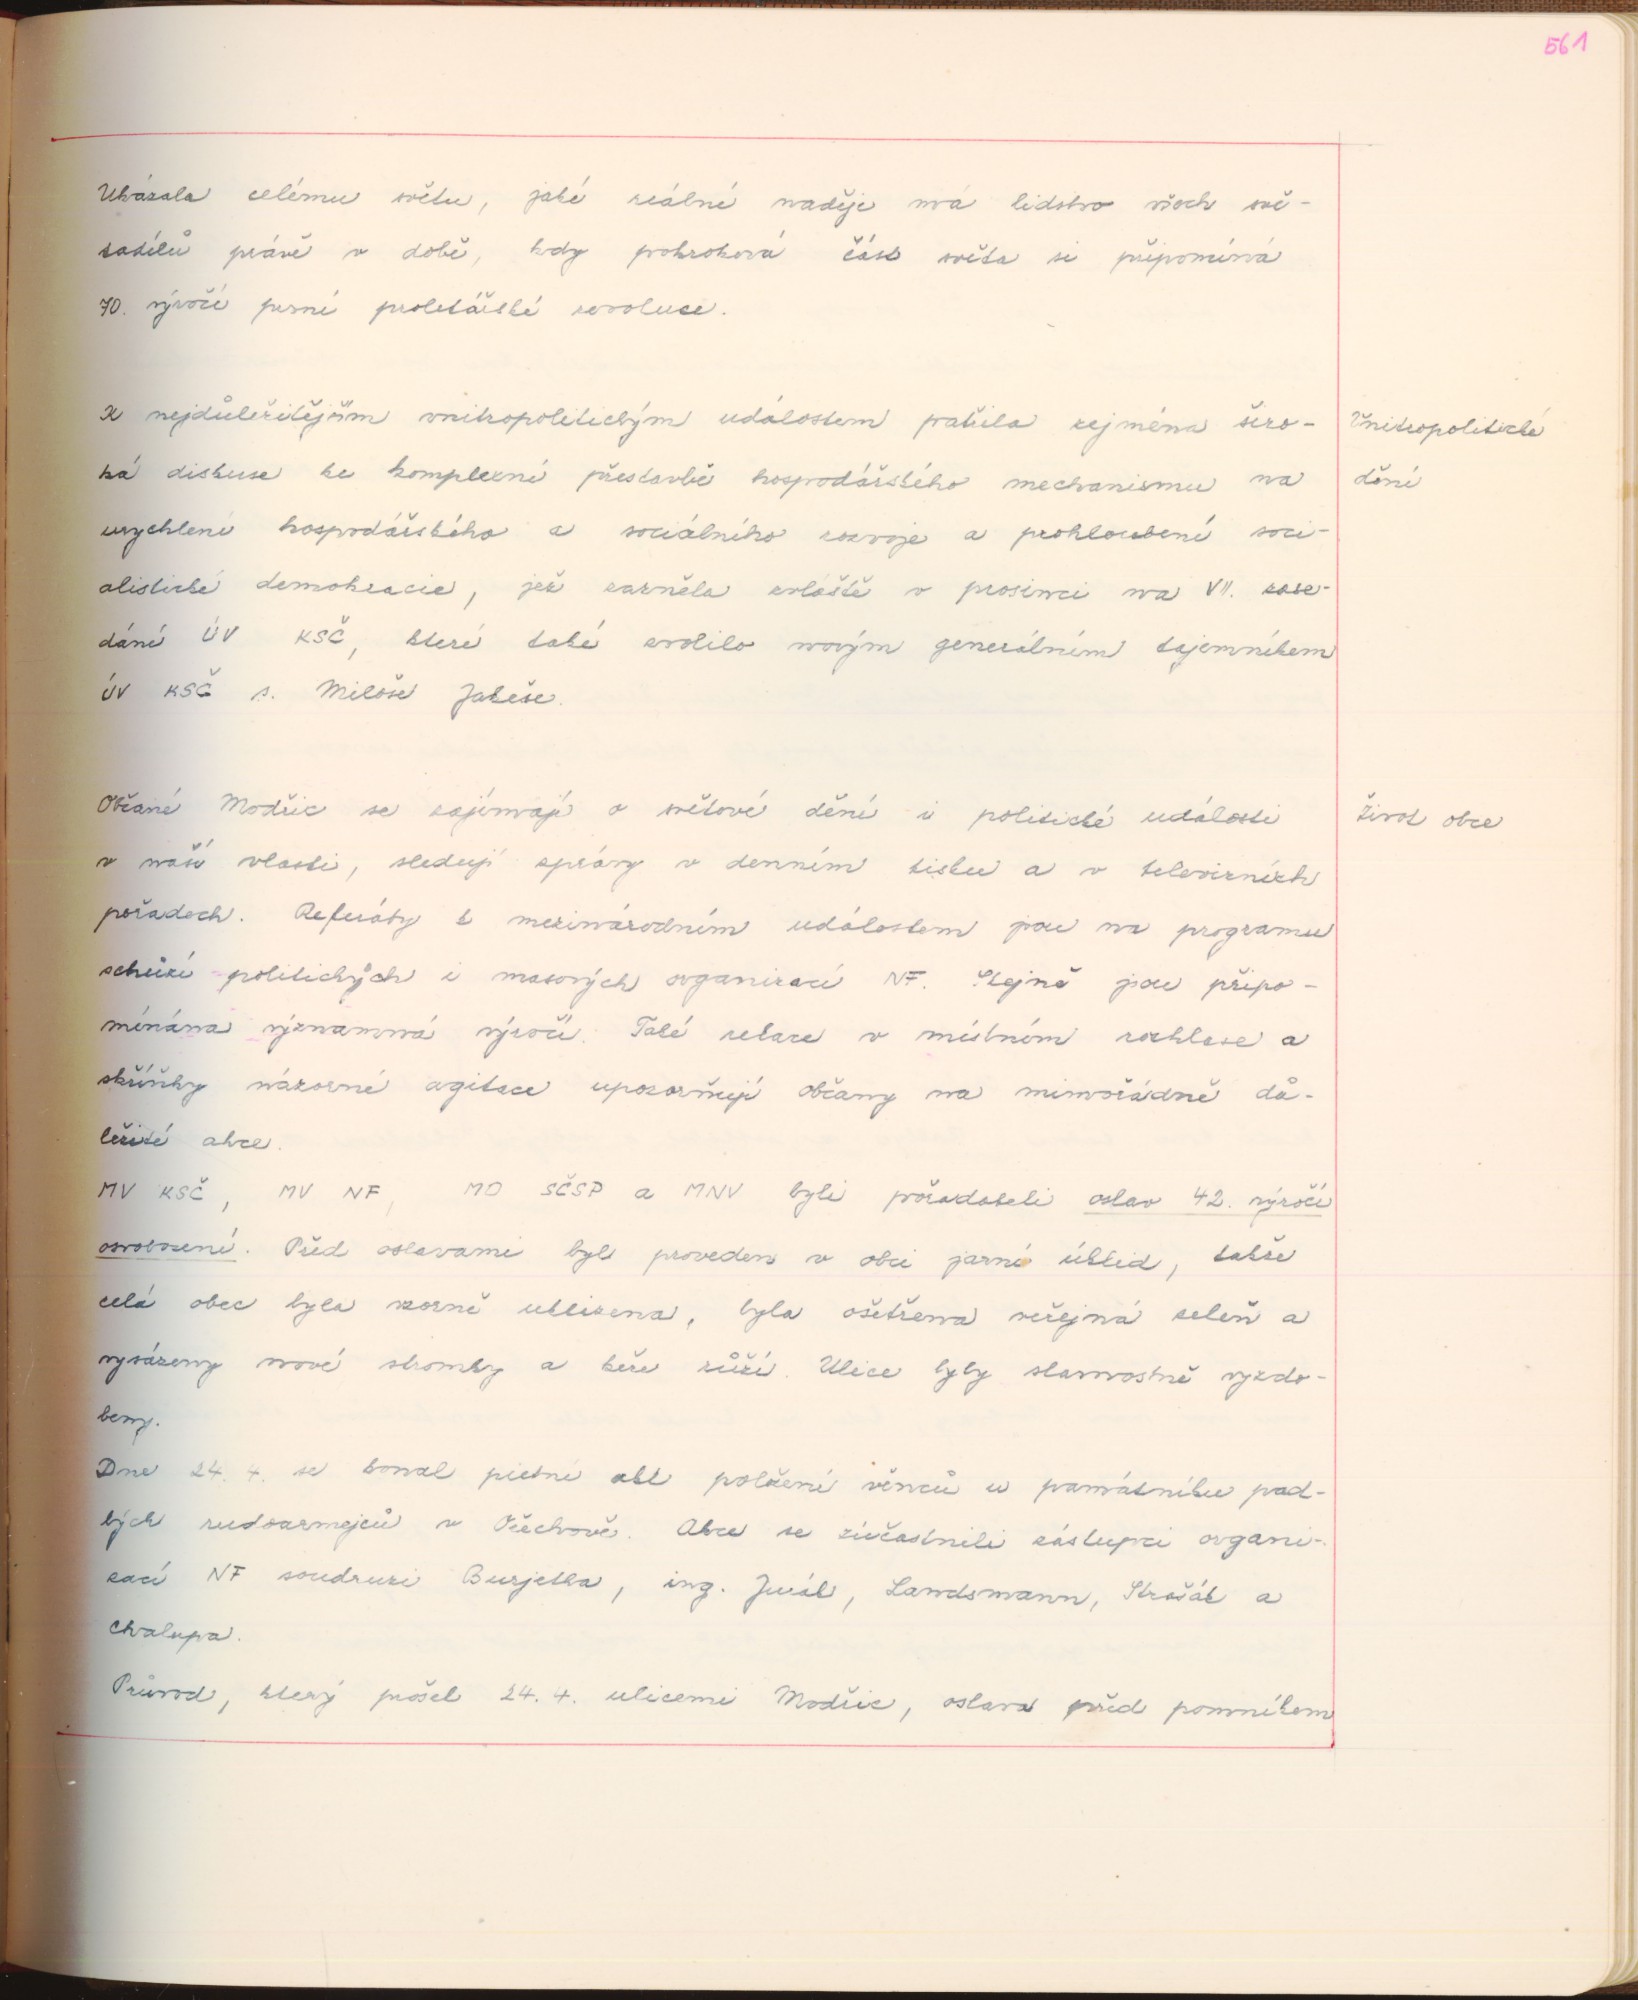 561
Ukázala celému světu, jaké reálné naděje má lidstvo všech svě-
tadílů právě v době, kdy pokroková část světa si připomíná
70. výročí první proletářské revoluce.
K nejdůležitějším vnitropolitickým událostem patřila zejména širo-
Vnitropolitické
ká diskuse ke komplexní přestavbě hospodářského mechanismu na
dění
urychlení hospodářského a sociálního rozvoje a prohloubení soci-
alistické demokracie, jež zazněla zvláště v prosinci na VII. zase-
dání ÚV KSČ, které také zvolilo novým generálním tajemníkem
ÚV KSČ s. Miloše Jakeše.
Občané Modřic se zajímají o světové dění i politické události
Život obce
v naší vlasti, sledují zprávy v denním tisku a v televizních
pořadech. Referáty k mezinárodním událostem jsou na programu
schůzí politických i masových organizací NF. Stejně jsou připo-
mínána významná výročí. Také relace v místním rozhlase a
skříňky názorné agitace upozorňují občany na mimořádně dů-
ležité akce.
MV KSČ, MV NF, MO SČSP a MNV byli pořadateli oslav 42. výročí
osvobození. Před oslavami byl proveden v obci jarní úklid, takže
celá obec byla vzorně uklizena, byla ošetřena veřejná zeleň a
vysázeny nové stromky a keře růží. Ulice byly slavnostně vyzdo-
beny.
Dne 24. 4. se konal pietní akt položení věnců u památníku pad-
lých rudoarmejců v Ořechově. Akce se zúčastnili zástupci organi-
zací NF soudruzi Burjetka, ing. Jurák, Landsmann, Strašák a
Chalupa.
Průvod, který prošel 24. 4. ulicemi Modřic, oslava před pomníkem